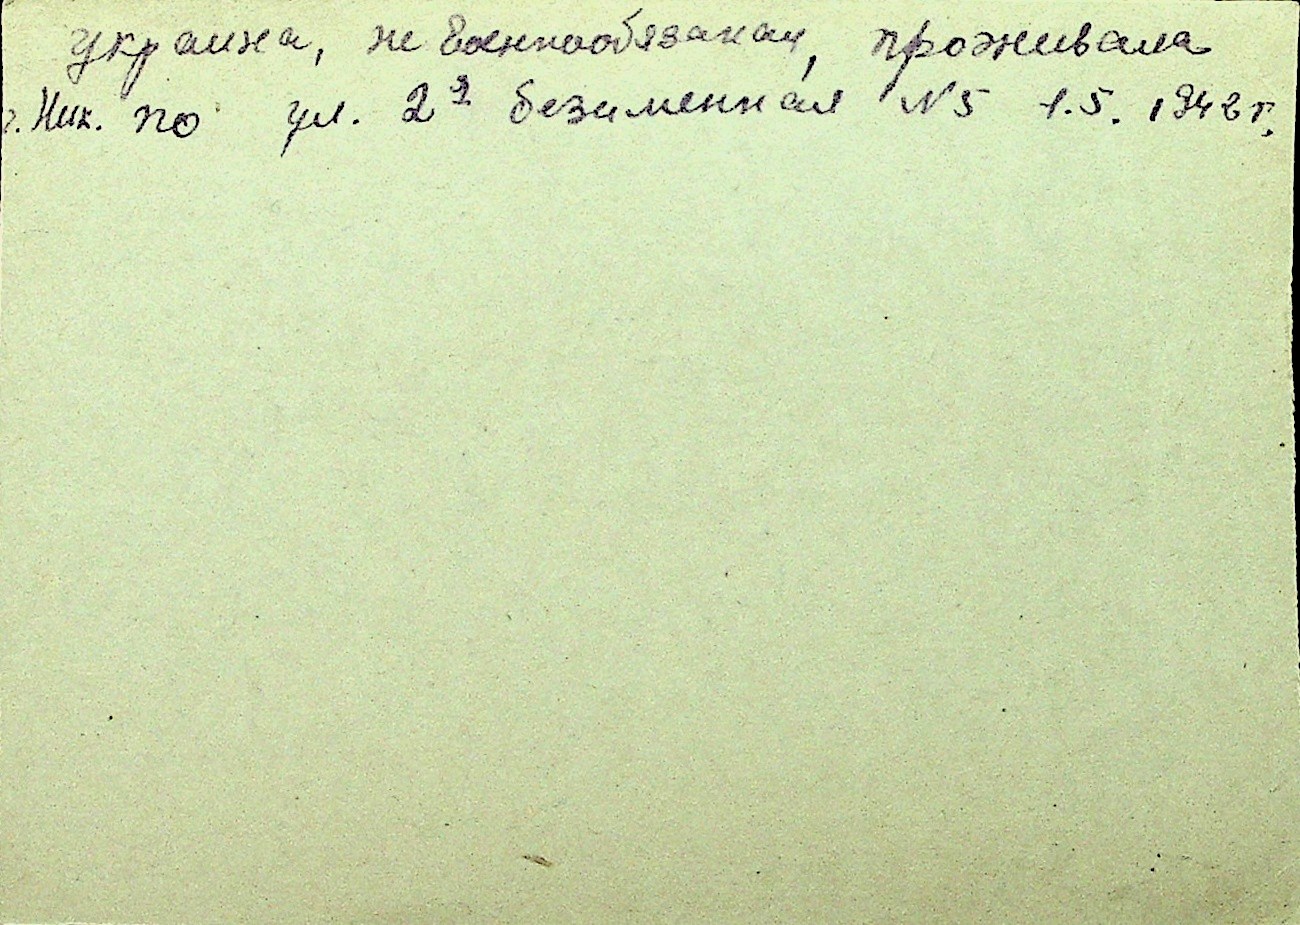 украинка, не военнообязаная, проживала
г. Ник. по ул. 2я безименная N5 1.5. 1942 г.